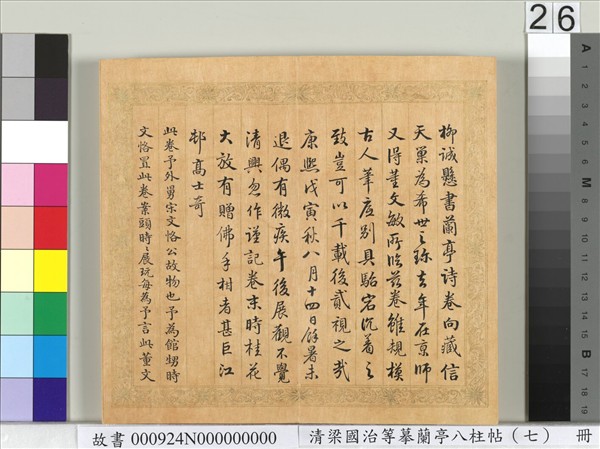 柳誠懸書蘭亭詩卷向藏信
天巢為希世之珎去年在京師
又得董文敏所臨茲卷雖規模
古人筆度別具駘宕沉着之
致豈可以千載後貳視之哉
康熙戊寅秋八月十四日餘暑未
退偶有微疾午後展觀不覺
清興忽作謹記卷末時桂花
大放有贈佛手柑者甚巨江
邨高士奇
此卷予外舅宋文恪公故物也予為館甥時
文恪置此卷案頭時時展玩每為予言此董文
26
A 1 2 3 4 5 6 M 8 9 10 11 12 13 14 15 B 17 18 19
故書 000924N000000000
清梁國治等摹蘭亭八柱帖（七） 冊